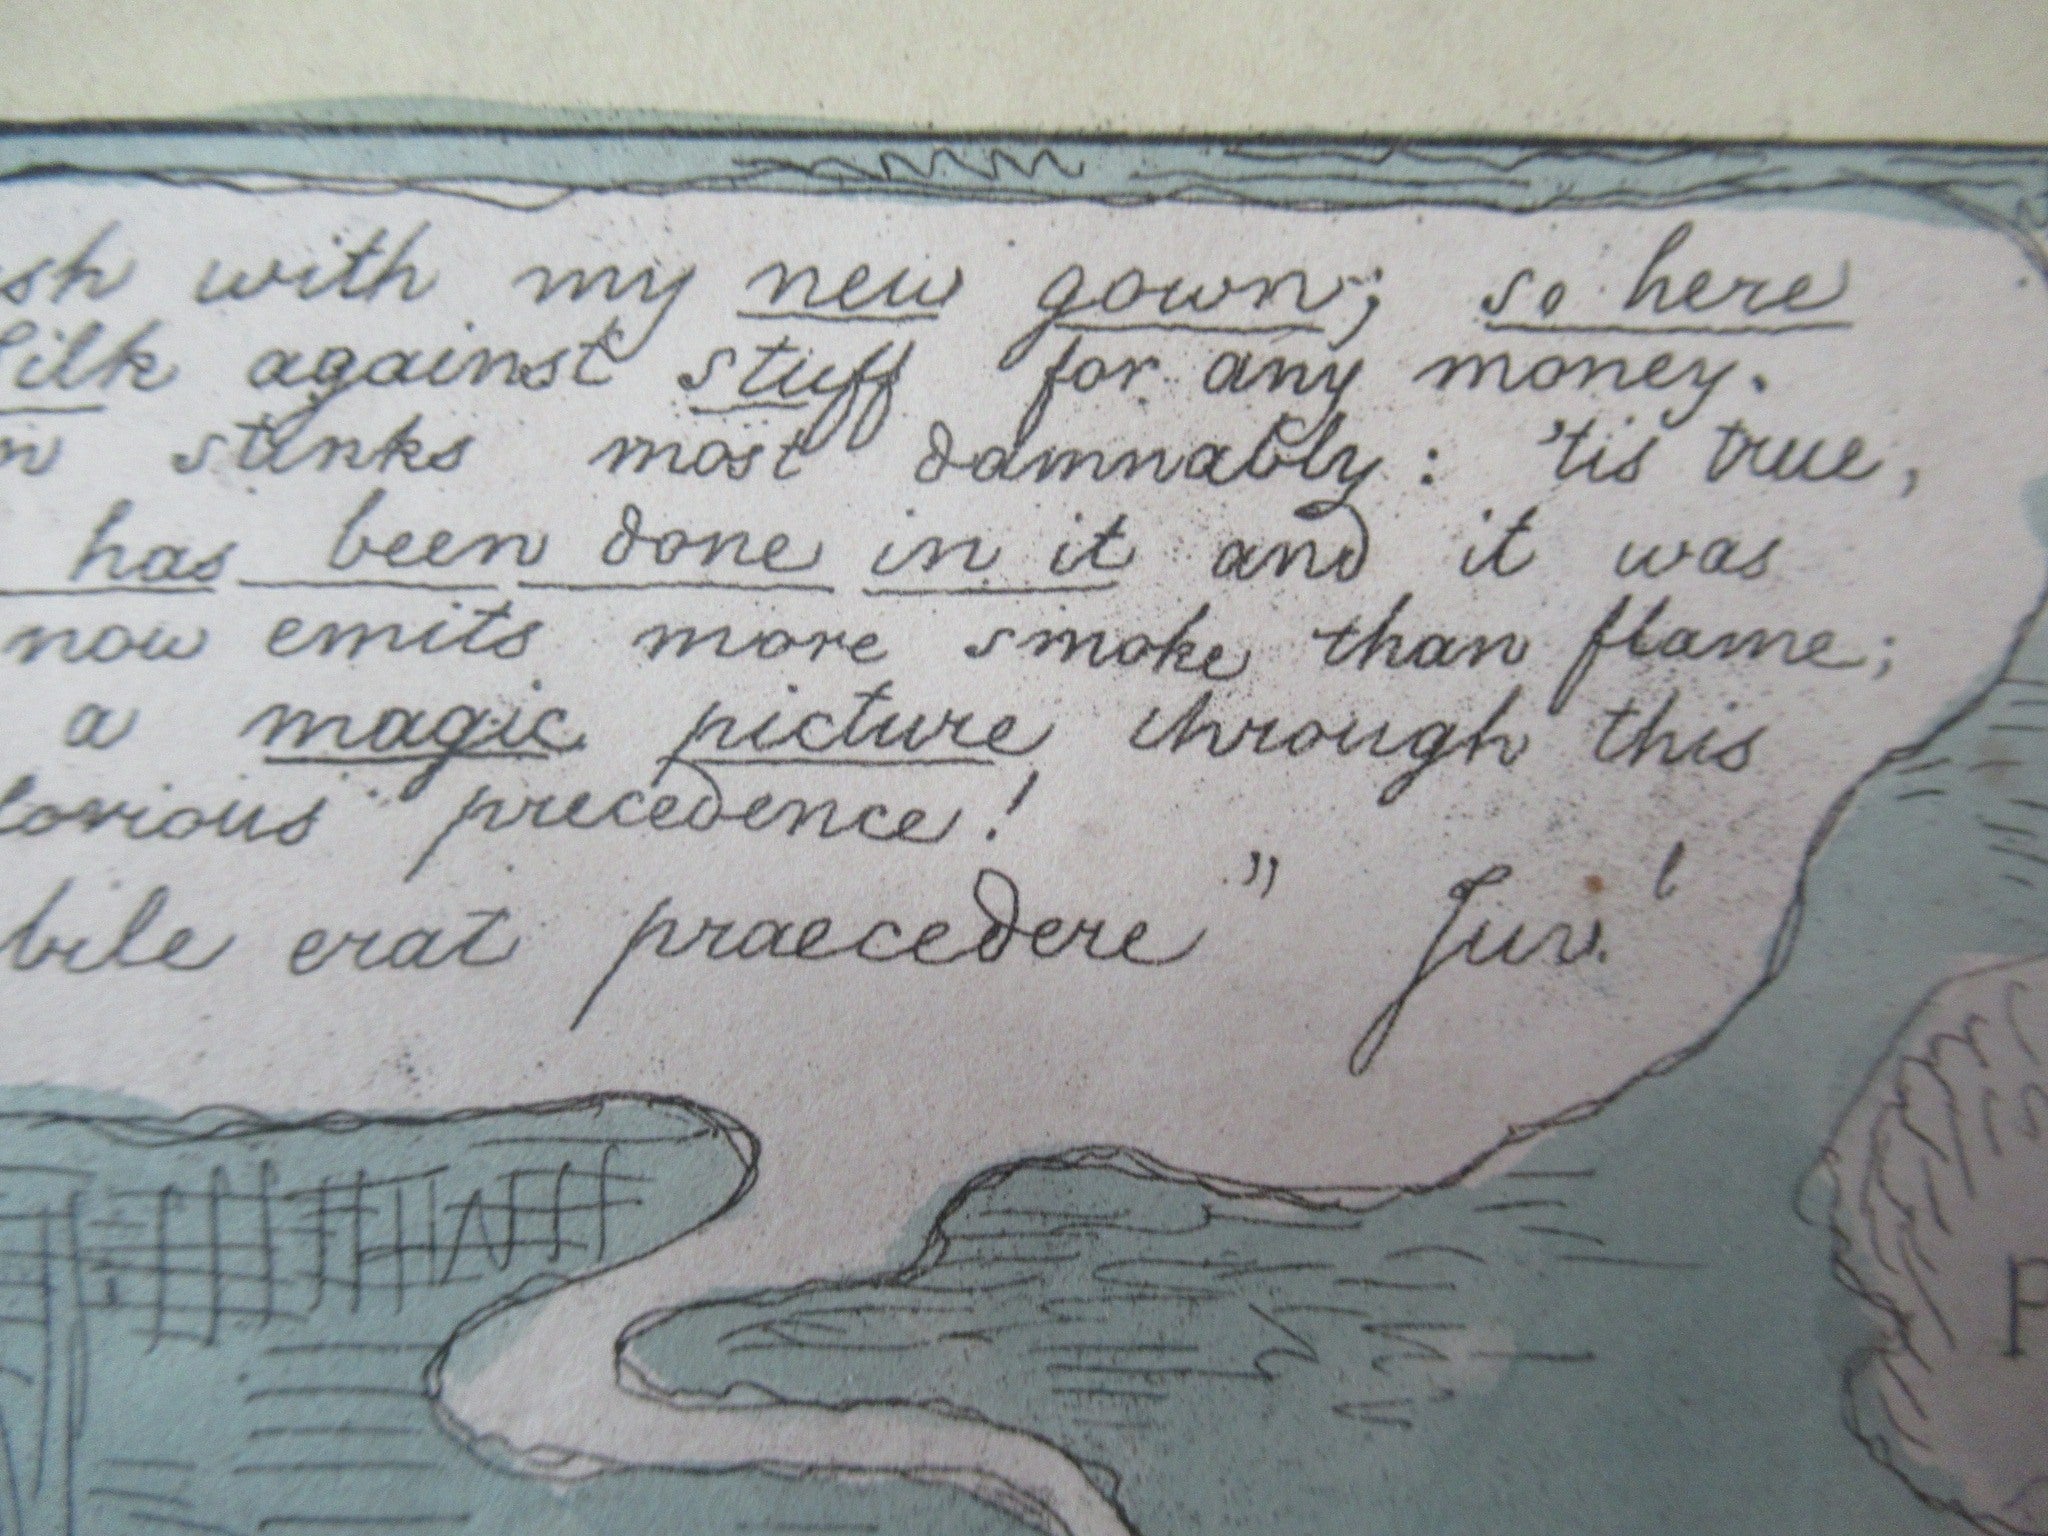 sh with my new gown; so here
Silk against stuff for any money.
stinks most damnably: 'tis true,
has been done in it and it was
now emits more smoke than flame;
a magic picture through this
lorious precedence!
bile erat praecedere" Juv.
P